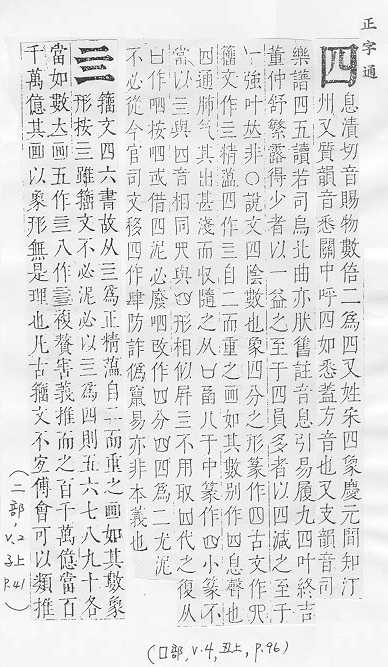 正字通
四 息漬切音賜物數倍二爲四又姓宋四象慶元閒知汀
州又質韻音悉關中呼四如悉葢方音也又支韻音司
樂譜四五讀若司烏北曲亦肰舊註音息引易履九四叶終吉
董仲舒繁露得少者以一益之至于四員多者以四減之至于
一強叶𠀤非○說文四陰數也象四分之形篆作四古文作𦉭
籒文作亖精薀四作亖自二而重之画如其數別作四息聲也
四通肺气其出甚淺而収隨之从口八于中篆作四小篆不
當以亖與四音相同𦉭與四形相似屏亖不用取四代之復从
口作呬按呬或借四泥必廢呬改作四分四四爲二尤泥
不必從今官司文移四作肆防詐僞窴易亦非本義也
亖 籒文四六書故从亖爲正精薀自二而重之画如其數象
形按亖雖籒文不必泥必以亖爲四則五六七八九十各
當如數太画五作八作複贅義推而之百千萬億當百
千萬億其画以象形無是理也凡古籒文不宐傅會可以類推
(二部, v.2 子上 P.41)
(口部, v.4, 丑上, p.96)